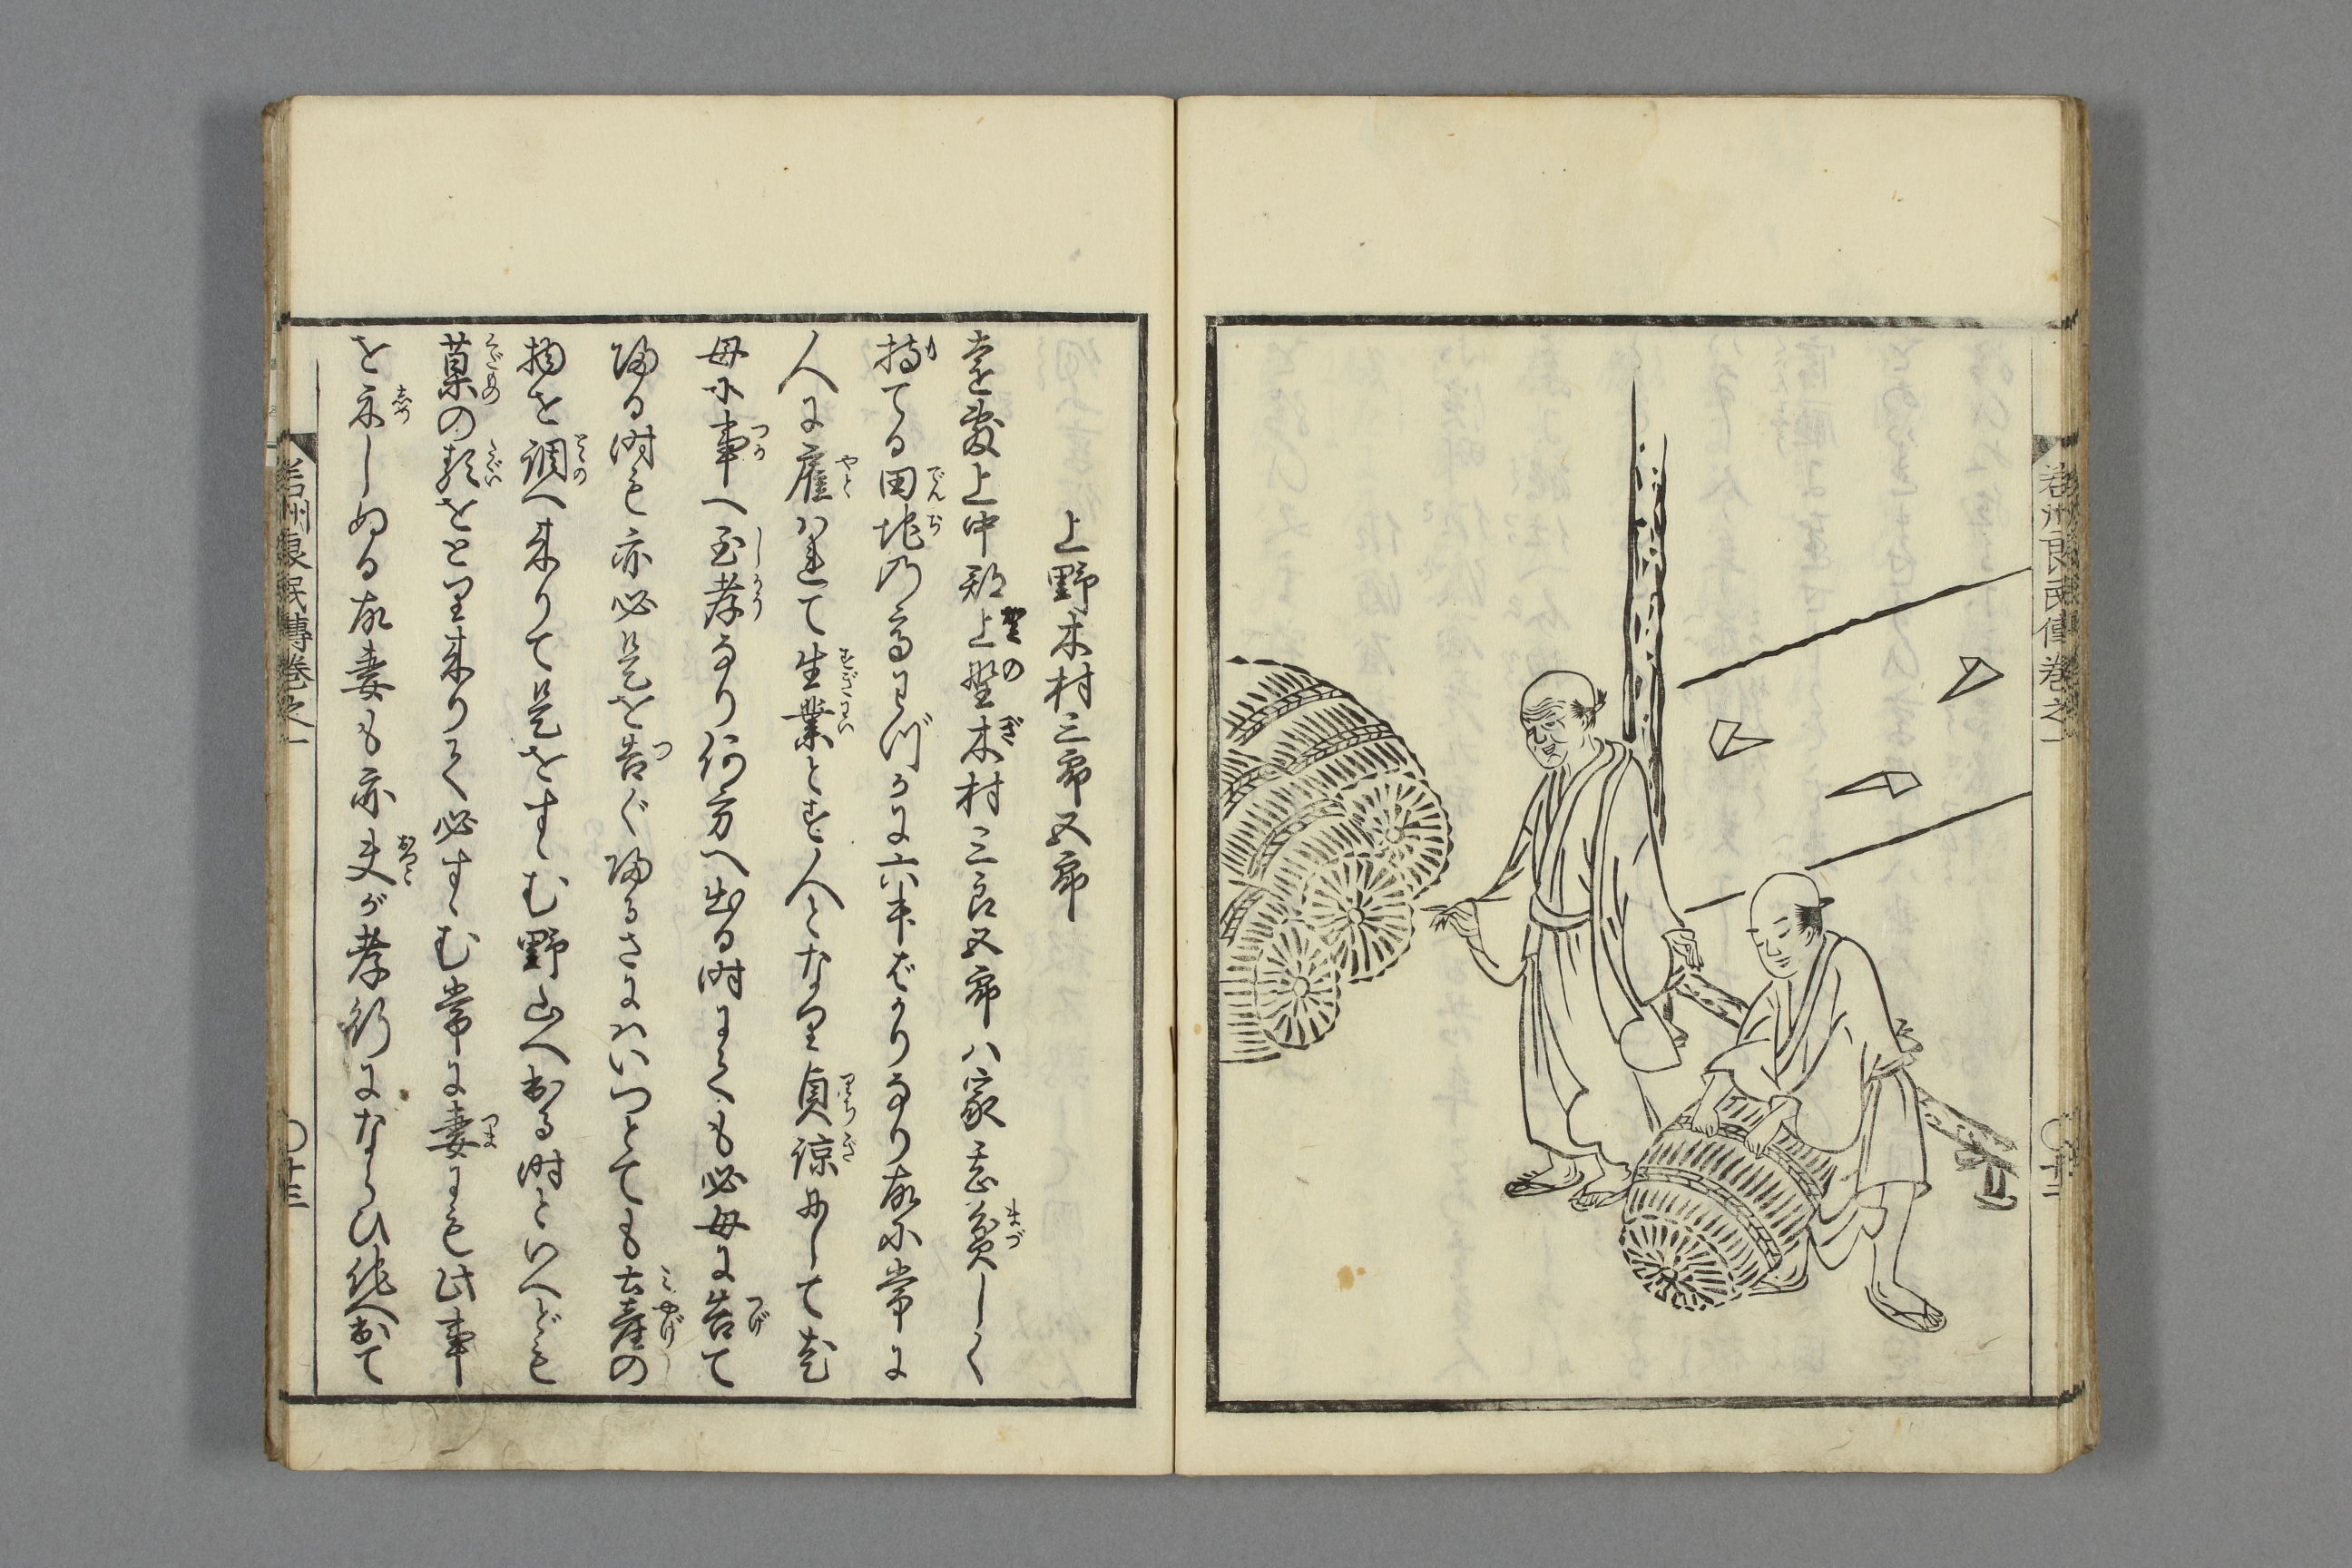 若州良民傳巻之一
〇廿二
上野木村三郎五郎
遠敷上中郡上野木村三良五郎ハ家甚貧しく
持てる田地の高わづかに六斗ばかりなり故に常に
人に雇ハれて生業とす人となり貞諒にして老
母に事へ至孝なり何方へ出る時にても必母に告て
帰る時も亦必是を告ぐ帰るさにハいつとても土産の
物を調へ来りて是をすゝむ野山へ出る時といへども
菓の類をとり来りて必すゝむ常に妻にも此事
を示しぬる故妻も亦夫が孝行にならひ他へ出て
若州良民傳巻之一
〇廿三